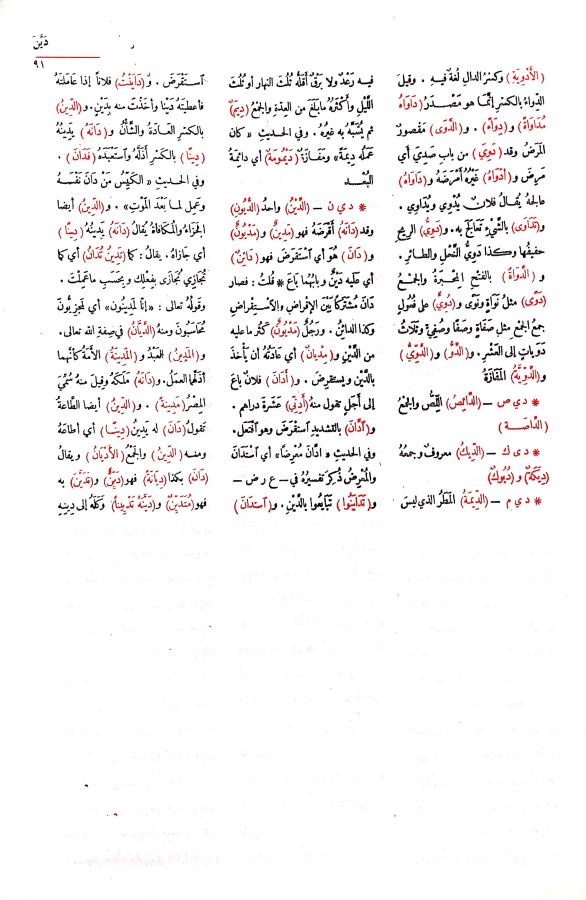 دَيَّنَ
٩١
(الأَدْوِيَة) وكَسْرُ الدالِ لُغةٌ فيهِ . وقيلَ
الدِّوَاءُ بالكسْرِ إنَّمَا هو مَصْدَرُ (دَاوَاهُ
مُدَاوَاةً) و (دِوَاءً) . و (الدَّوَى) مَقْصُورٌ
المَرَضُ وقد (دَوِيَ) من باب صَدِيَ أي
مَرِضَ و (أَدْوَاهُ) غَيْرُهُ أَمْرَضَهُ و (دَاوَاهُ)
عالجَهُ يُقَالُ فلانٌ يُدْوِي ويُدَاوِي .
و (تَدَاوَى) بالشَّيْءِ تَعَالَجَ به . و (دَوِيُّ) الرِّيحِ
حَفِيفُها وكذا دَوِيُّ النَّحْلِ والطائرِ .
و (الدَّوَاةُ) بالفتحِ المِحْبَرَةُ والجمْعُ
(دَوًى) مثلُ نَواةٍ ونَوًى و (دُوِيٌّ) على فُعُولٍ
جمعُ الجمْعِ مثلِ صَفَاةٍ وصَفًا وصُفِيٍّ وثَلَاثُ
دَوَيَاتٍ إلى العَشْرِ . و (الدَّوُّ) و (الدَّوِّيُّ)
و (الدَّوِّيَّةُ) المَفَازَةُ
* د ي ص – (الدَّائِصُ) اللِّصُّ والجمْعُ
(الدَّاصَة)
* د ي ك – (الدِّيكُ) معروفٌ وجمعُهُ
(دِيَكَةٌ) و (دُيُوكٌ)
* د ي م – (الدِّيمَةُ) المَطَرُ الذي ليسَ
فيه رَعْدٌ ولا بَرْقٌ أَقَلُّهُ ثُلُثُ النهارِ أو ثُلُثُ
اللَّيْلِ وأَكْثَرُهُ مابَلَغَ من العِدَّةِ والجمْعُ (دِيَمٌ)
ثم يُشَبَّهُ به غيرُهُ . وفي الحديثِ « كان
عَمَلُهُ دِيمَةً» ومَفَازَةٌ (دَيْمُومَةٌ) أي دائِمَةُ
البُعْدِ
* د ي ن – (الدَّيْنُ) واحدُ (الدُّيُونِ)
وقد (دَانَهُ) أَقْرَضَهُ فهو (مَدِينٌ) و (مَدْيُونٌ)
و (دَانَ) هُوَ أَي ٱسْتَقْرَضَ فهو (دَائِنٌ)
أي عليه دَيْنٌ وبابُهما باعَ * قُلتُ : فصار
دَانَ مُشْتَرَكًا بَيْنَ الإِقْراضِ والٱسْتِقْراضِ
وكذا الدائِنُ . ورَجُلٌ (مَدْيُونٌ) كَثُرَ ما عليه
من الدَّيْنِ و (مِدْيانٌ) أي عادَتُهُ أن يأْخُذَ
بالدَّيْنِ ويستقرضَ . و (أَدَانَ) فلانٌ باعَ
إلى أَجَلٍ تقول منه (أَدِنِّي) عَشَرةَ دراهِمَ .
و (ٱدَّانَ) بالتَّشْديدِ ٱستَقْرَضَ وهو ٱفْتَعَل .
وفي الحديثِ « ٱدَّانَ مُعْرِضًا» أي ٱسْتَدَانَ
والمُعْرِضُ ذُكِرَ تفسيرُهُ في – ع ر ض –
و (تَدَايَنُوا) تَبَايَعُوا بالدَّيْنِ . و (ٱستدَانَ)
ٱستَقْرَضَ . و (دَايَنْتُ) فلانًا إذا عَامَلْتَهُ
فأَعطَيْتَهُ دَيْنًا وأَخَذْتَ منه بِدَيْنٍ . و (الدِّينُ)
بالكَسْرِ العَادَةُ والشَّأْنُ و (دَانَهُ) يَدِينُهُ
(دِينًا) بالكَسْرِ أَذَلَّهُ وٱستَعْبَدَهُ (فَدَانَ) .
وفي الحديثِ « الكَيِّسُ مَنْ دَانَ نَفْسَهُ
وعَمِلَ لمَا بَعْدَ المَوْتِ» . و (الدِّينُ) أيضا
الجَزَاءُ والمُكافَاةُ يُقَالُ (دَانَهُ) يَدِينُهُ (دِينًا)
أي جازاه . يقال : كما (تَدِينُ تُدَانُ) أي كما
تُجَازِي تُجَازَى بفِعْلِك وبحَسَبِ ماعَمِلْتَ .
وقولُهُ تعالى : «إنَّا لَمَدِينُونَ» أي لَمَجْزِيُّونَ
مُحَاسَبُونَ ومنهُ (الدَّيَّانُ) في صِفةِ الله تعالى .
و (المَدِينُ) العَبْدُ و (المَدِينَةُ) الأَمَةُ كأنَّهما
أَذَلَّهما العملُ . و (دَانَهُ) مَلَكَهُ وقيلَ منه سُمِّيَ
المِصْرُ (مَدِينَةً) . و (الدِّينُ) أيضا الطَّاعَةُ
تَقولُ (دَانَ) له يَدِينُ (دِينًا) أي أطاعَهُ
ومنه (الدِّينُ) والجمْعُ (الأَدْيانُ) ويقالُ
(دَانَ) بكذا (دِيَانَةً) فهو (دَيِّنٌ) و (تَدَيَّنَ) به
فهو (مُتَدَيِّنٌ) و (دَيَّنَهُ تَدْيِينًا) وَكَلَهُ إلى دِينِهِ